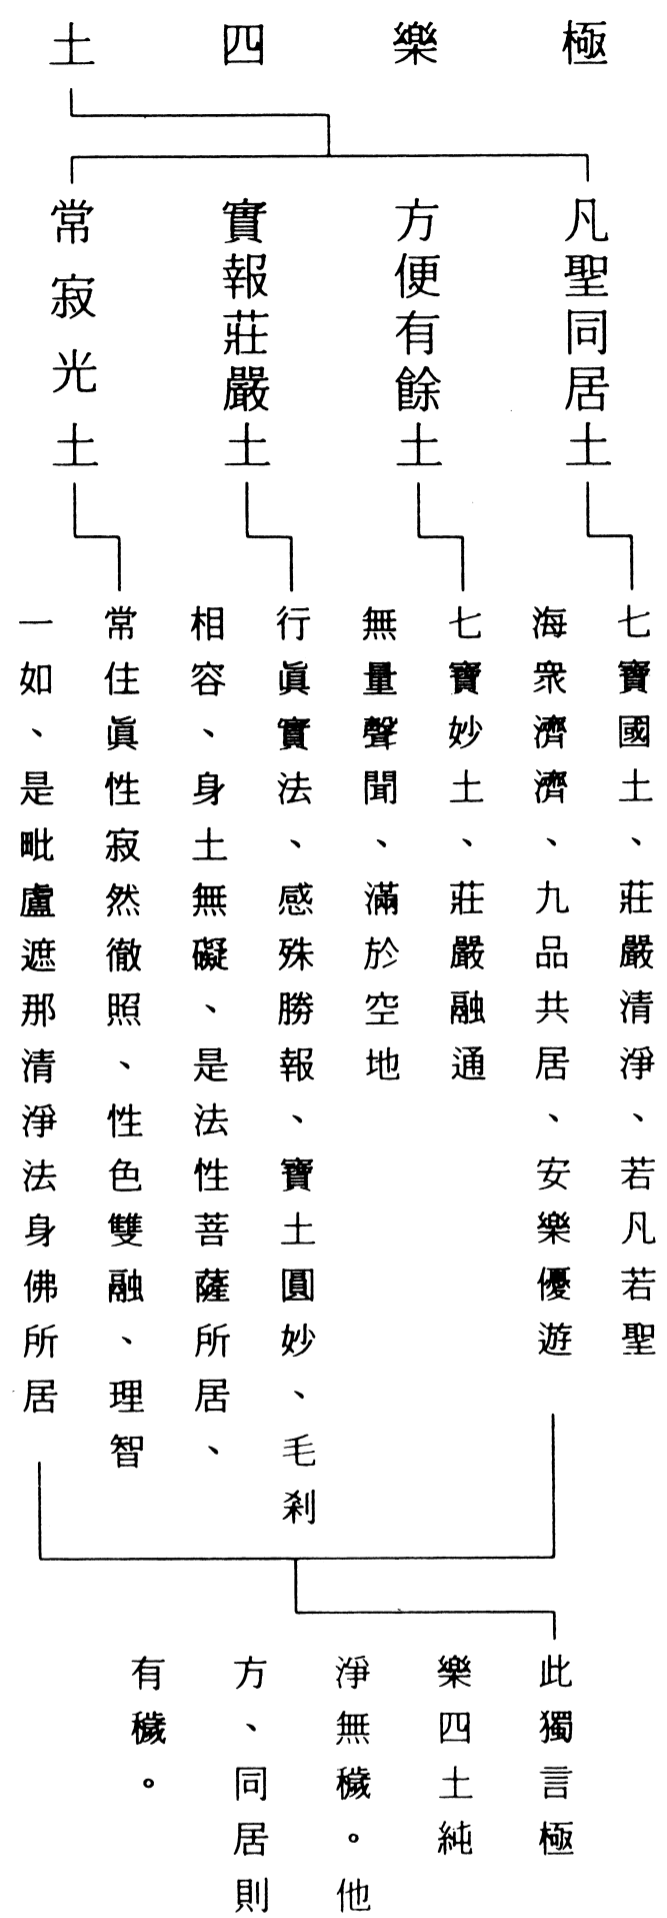 極樂四土
凡聖同居土
方便有餘土
實報莊嚴土
常寂光土
七寶國土、莊嚴清淨、若凡若聖
海衆濟濟、九品共居、安樂優遊
七寶妙土、莊嚴融通
無量聲聞、滿於空地
行眞實法、感殊勝報、寶土圓妙、毛刹
相容、身土無礙、是法性菩薩所居、
常住眞性寂然徹照、性色雙融、理智
一如、是毗盧遮那清淨法身佛所居
此獨言極
樂四土純
淨無穢。他
方、同居則
有穢。